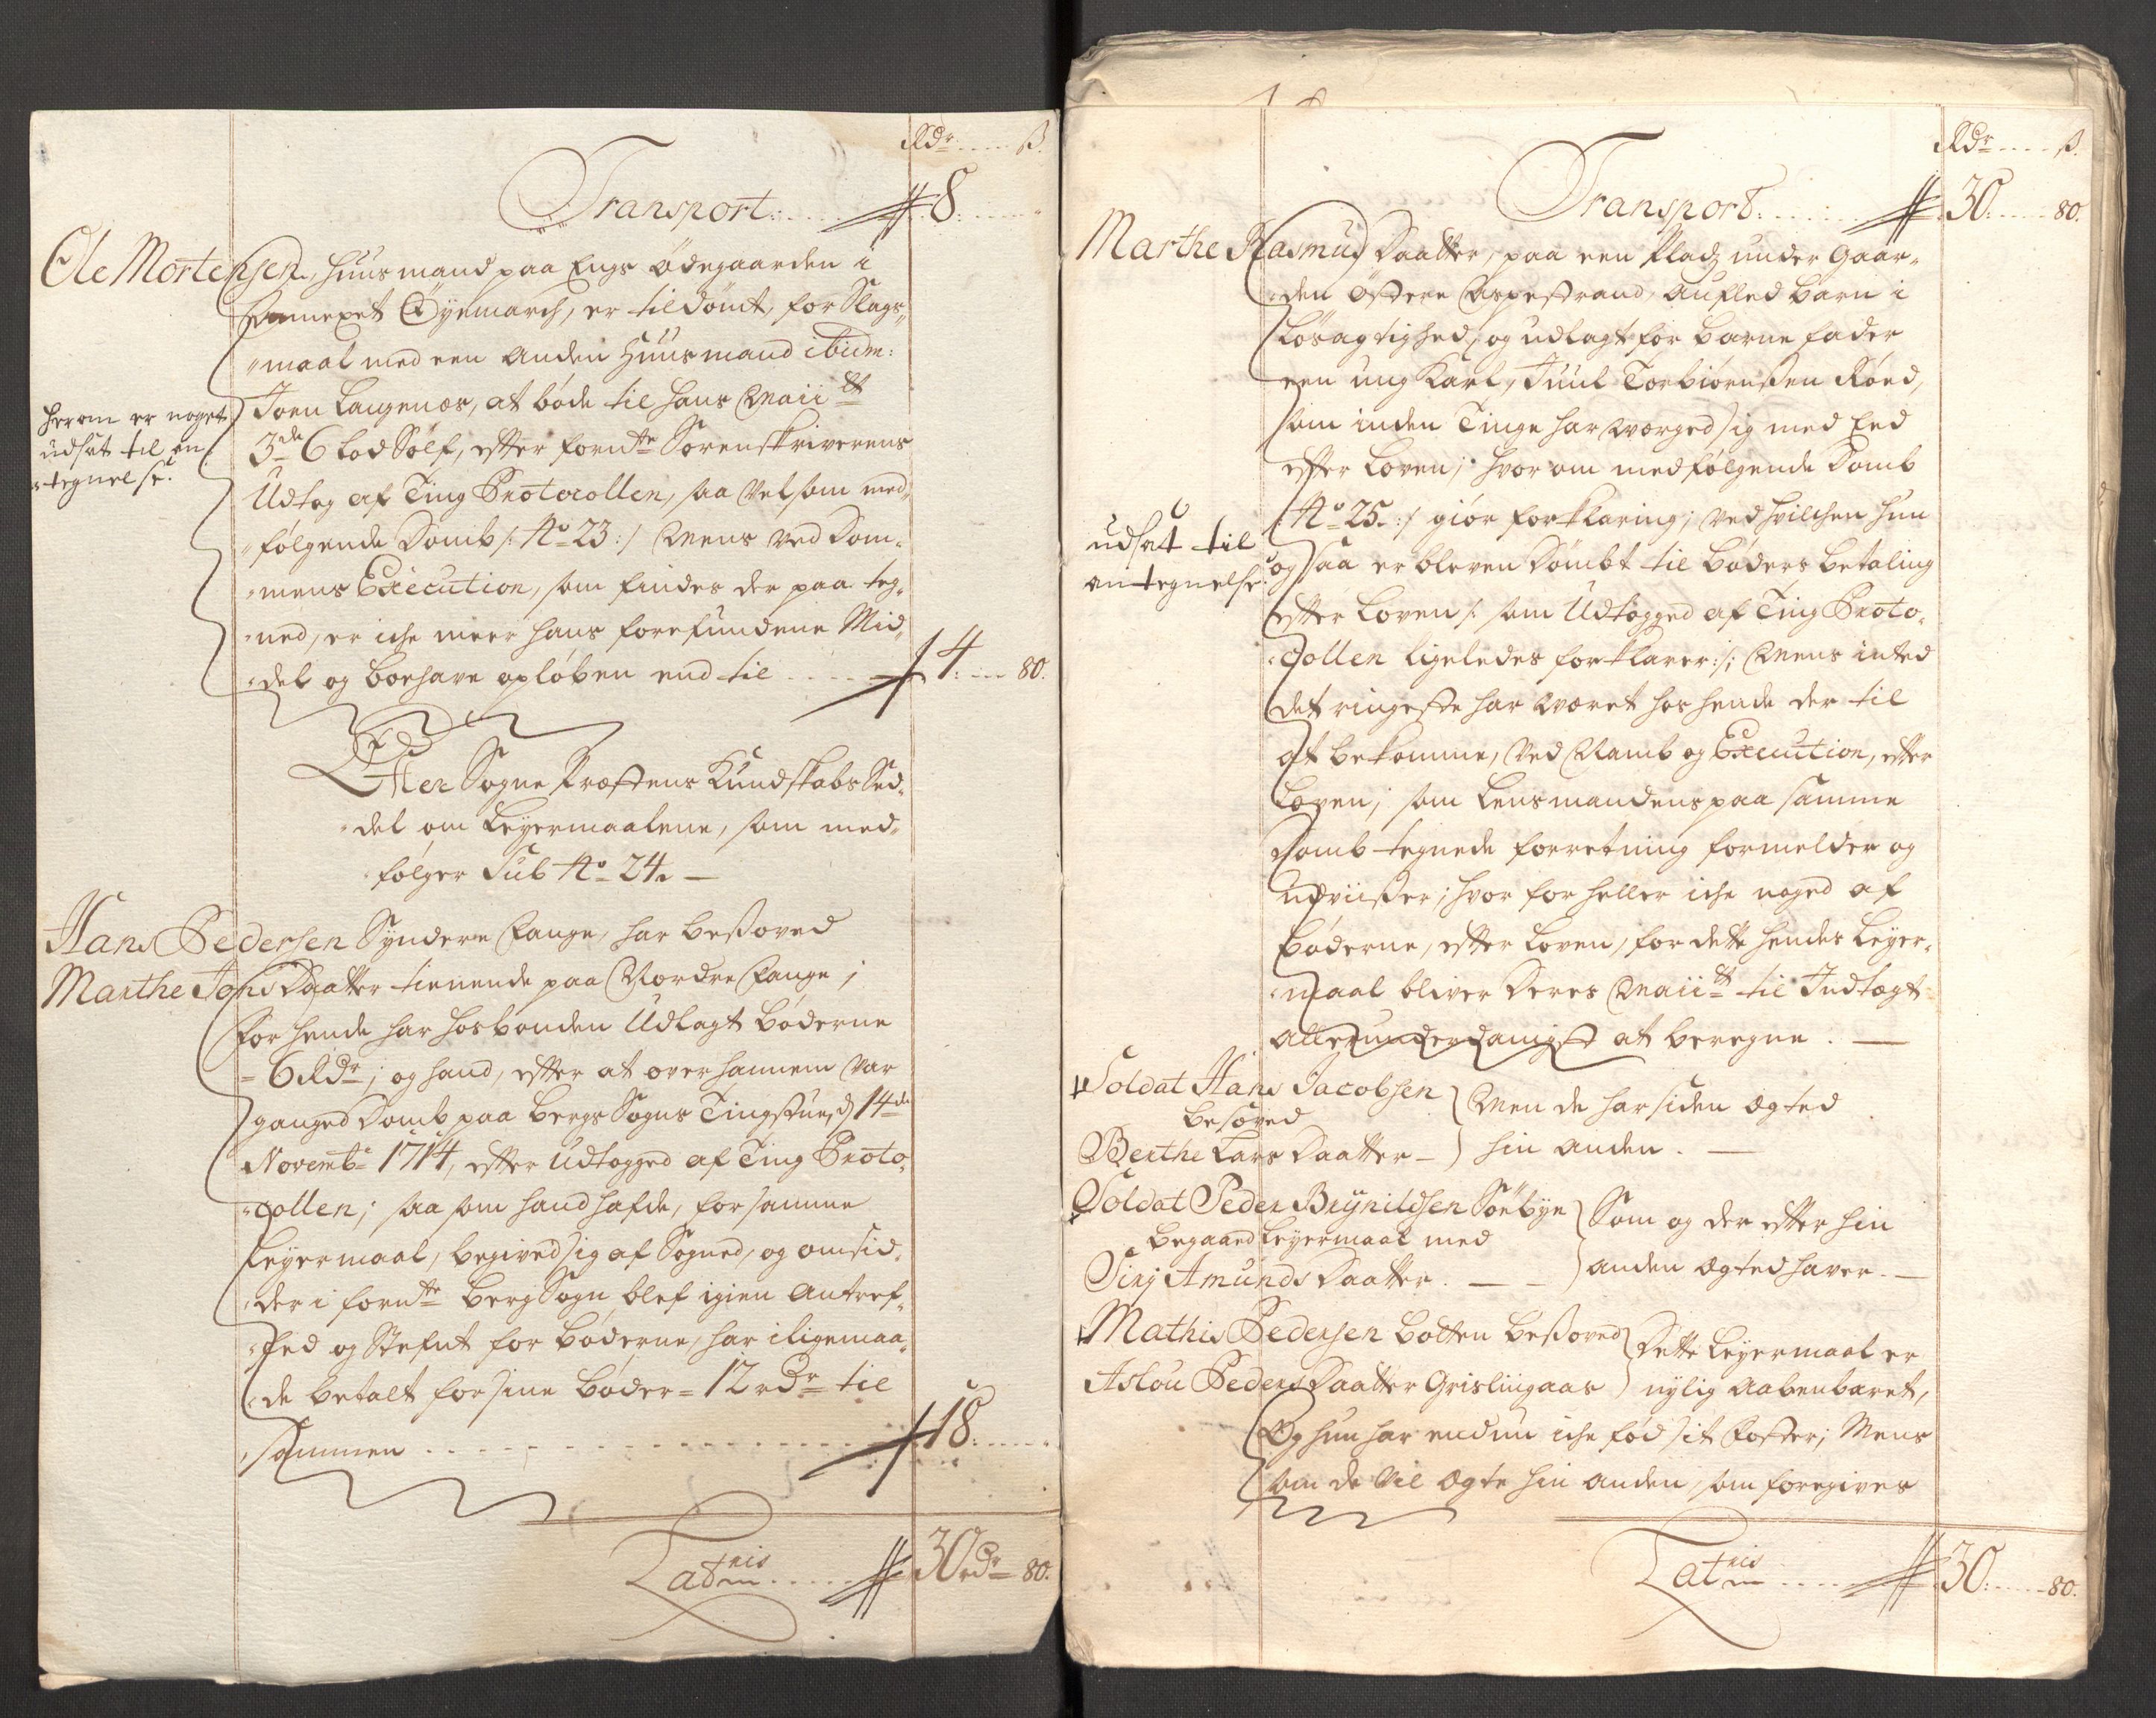 Rdr ..... ß.
Transport: ..... 8: .....
Ole Mortensen, Huusmand paa Engs Ödegaarden i
Annexet Öÿemarch, er tildömt, for Slags-
maal med een anden Huusmand ibidm:
Joen Langenæs, at böde til Hans Maii et
3de 6 lod Sölf, efter forndte Sorenskriverens
Udtog af Ting Protocollen, saa vel som med-
fölgende Domb /: No 23: / Mens ved Dom-
mens Execution, som findes der paa teg-
ned, er iche meer hans forefundene Mid-
del og boehave opløben end til ..... 4: ... 80.
herom er noget
udsat til an-
tegnelse.
Efter Sogne Præstens Kundskabs Sed-
del om Leyermaalene, som med-
fölger Sub No 24. —
Hans Pedersen Syndere Lange, har besoved
Marthe Jons Daatter tienende paa Nordre Lange;
for hende har hosbonden Udlagt böderne
= 6 Rdr; og hand, efter at over hannem var
ganged Domb paa Bergs Sogns Tingstue, d 14de
Novembr 1714, efter udtogged af Ting Proto-
collen; saa som hand hafde, for samme
Leyermaal, begived sig af Sogned, og omsid-
der i forndte Berg Sogn, blef igien antref-
fed og Stefnt for böderne, har iligemaa-
de betalt for sine böder = 12 rdr til
sammen ..... 18: .....
Latnis ..... 30 rdr 80.
Rdr ..... ß.
Transport: ..... 30: ..... 80.
Marthe Rasmus Daatter, paa een Pladz under Gaar-
den Östere Aspestrand, aufled barn i
Lösagtighed, og udlagt for barne fader
een ung Karl, Juul Torbiörnsen Röed,
som inden Tinge har værged sig med Eed
efter Loven; hvorom medfölgende Domb
/: No 25. :/ giör forklaring; ved hvilchen hun
ogsaa er bleven Dömbt til böders betaling
efter Loven /: som Udtogged af Ting Proto-
collen ligeledes forklarer: /: Mens inted
det ringeste har været hos hende der til
at bekomme, ved Namb og Execution, efter
Loven; som Lensmandens paa samme
Domb tegnede forretning formelder og
udviiser; hvor for heller iche noged af
böderne, efter Loven, for dette hendes Leyer-
maal bliver Deres Maii et til Indtægt
allerunderdanigst at beregne. —
udsat til
antegnelse.
Soldat Hans Jacobsen
besoved
Berthe Lars Daatter —
Men de har siden ægted
hin anden. —
Soldat Peder Brynildsen Söebye
begaaed Leyermaal med
Sirj Amunds Daatter. —
Som og der efter hin
anden ægted haver. —
Mathis Pedersen Botten besoved
Aslou Peders Daatter Grislingaas
Dette Leyermaal er
nylig aabenbaret,
Og hun har endnu iche föd sit Foster; Mens
som de vil ægte hin anden, som foregives
Latnis ..... 30: ..... 80.